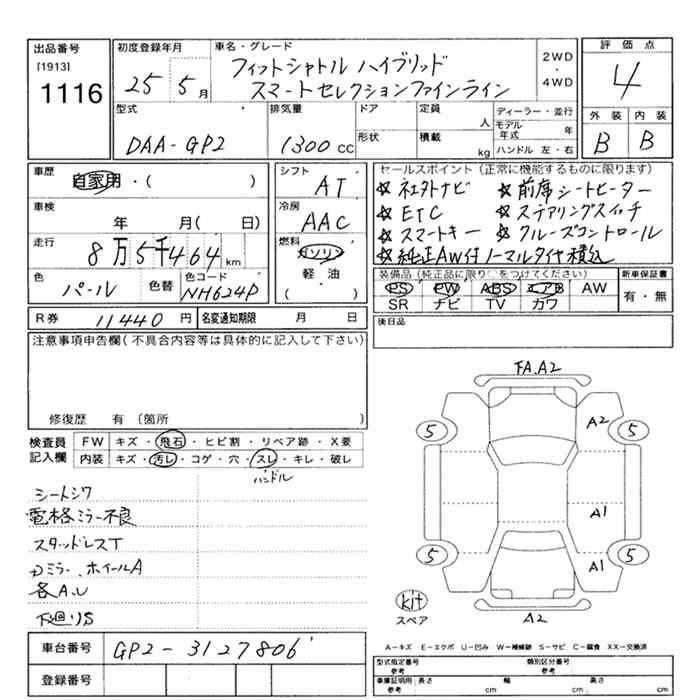 出品番号
[1913]
1116
初度登録年月
25 5月
車名・グレード
フィットシャトル ハイブリッド
スマートセレクションファインライン
2WD
・
4WD
評価点
4
外装 内装
B B
型式
DAA-GP2
排気量
1300 CC
ドア
形状
定員
人
積載
kg
ディーラー・並行
モデル年式 年
ハンドル 左・右
車歴
自家用・( )
車検
年 月( 日)
走行
8万5千464 km
色
パール
色替
色コード
NH624P
シフト
AT
冷房
AAC
燃料
ガソリン
軽 油
( )
セールスポイント (正常に機能するものに限ります)
☆ 社外ナビ ☆ 前席シートヒーター
☆ ETC ☆ ステアリングスイッチ
☆ スマートキー ☆ クルーズコントロール
☆ 純正AW付ノーマルタイヤ積込
装備品 (純正品に限り○をつけてください)
PS PW ABS エアB AW
SR ナビ TV カワ
新車保証書
有・無
R券 11440 円
名変通知期限 月 日
後日品
注意事項申告欄(不具合内容等は具体的に記入して下さい)
修復歴 有 〔箇所
検査員
記入欄
FW キズ・飛石・ヒビ割・リペア跡・X要
内装 キズ・汚レ・コゲ・穴・スレ・キレ・破レ
ハンドル
シートシワ
電格ミラー不良
スタッドレスT
ミラー、ホイールA
各A.U
下廻りS
車台番号 GP2-3127806
登録番号
FA.A2
5
5
A2
A1
5
5
A1
kit
スペア
A2
A-キズ E-エクボ U-凹み W-補修跡 S-サビ C-腐食 XX-交換済
型式指定番号
参考
類別区分番号
参考
車庫証明用
参考
長さ cm
幅 cm
高さ cm